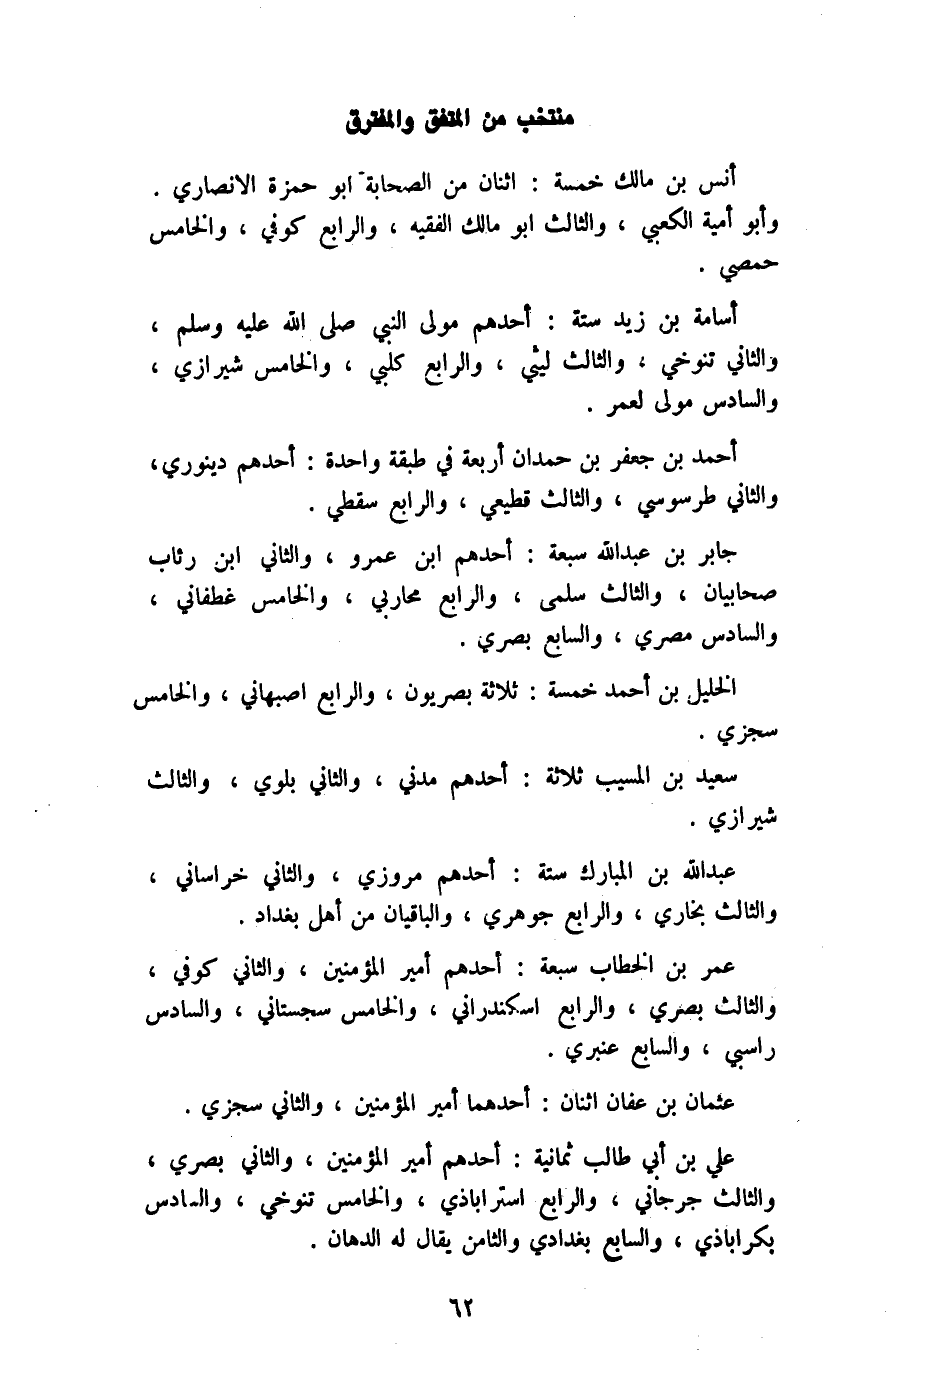 منتخب من المتفق والمفترق
أنس بن مالك خمسة : اثنان من الصحابة ابو حمزة الانصاري .
وأبو أمية الكعبي ، والثالث ابو مالك الفقيه ، والرابع كوفي ، والخامس
حمصي .
أسامة بن زيد ستة : أحدهم مولى النبي صلى الله عليه وسلم ،
والثاني تنوخي ، والثالث ليثي ، والرابع كلبي ، والخامس شيرازي ،
والسادس مولى لعمر .
أحمد بن جعفر بن حمدان أربعة في طبقة واحدة : أحدهم دينوري،
والثاني طرسوسي ، والثالث قطيعي ، والرابع سقطي .
جابر بن عبدالله سبعة : أحدهم ابن عمرو ، والثاني ابن رئاب
صحابيان ، والثالث سلمى ، والرابع محاربي ، والخامس غطفاني ،
والسادس مصري ، والسابع بصري .
الخليل بن أحمد خمسة : ثلاثة بصريون ، والرابع اصبهاني ، والخامس
سجزي .
سعيد بن المسيب ثلاثة : أحدهم مدني ، والثاني بلوي ، والثالث
شيرازي .
عبدالله بن المبارك ستة : أحدهم مروزي ، والثاني خراساني ،
والثالث بخاري ، والرابع جوهري ، والباقيان من أهل بغداد .
عمر بن الخطاب سبعة : أحدهم أمير المؤمنين ، والثاني كوفي ،
والثالث بصري ، والرابع اسكندراني ، والخامس سجستاني ، والسادس
راسبي ، والسابع عنبري .
عثمان بن عفان اثنان : أحدهما أمير المؤمنين ، والثاني سجزي .
علي بن أبي طالب ثمانية : أحدهم أمير المؤمنين ، والثاني بصري ،
والثالث جرجاني ، والرابع استراباذي ، والخامس تنوخي ، والسادس
بكراباذي ، والسابع بغدادي والثامن يقال له الدهان .
٦٢